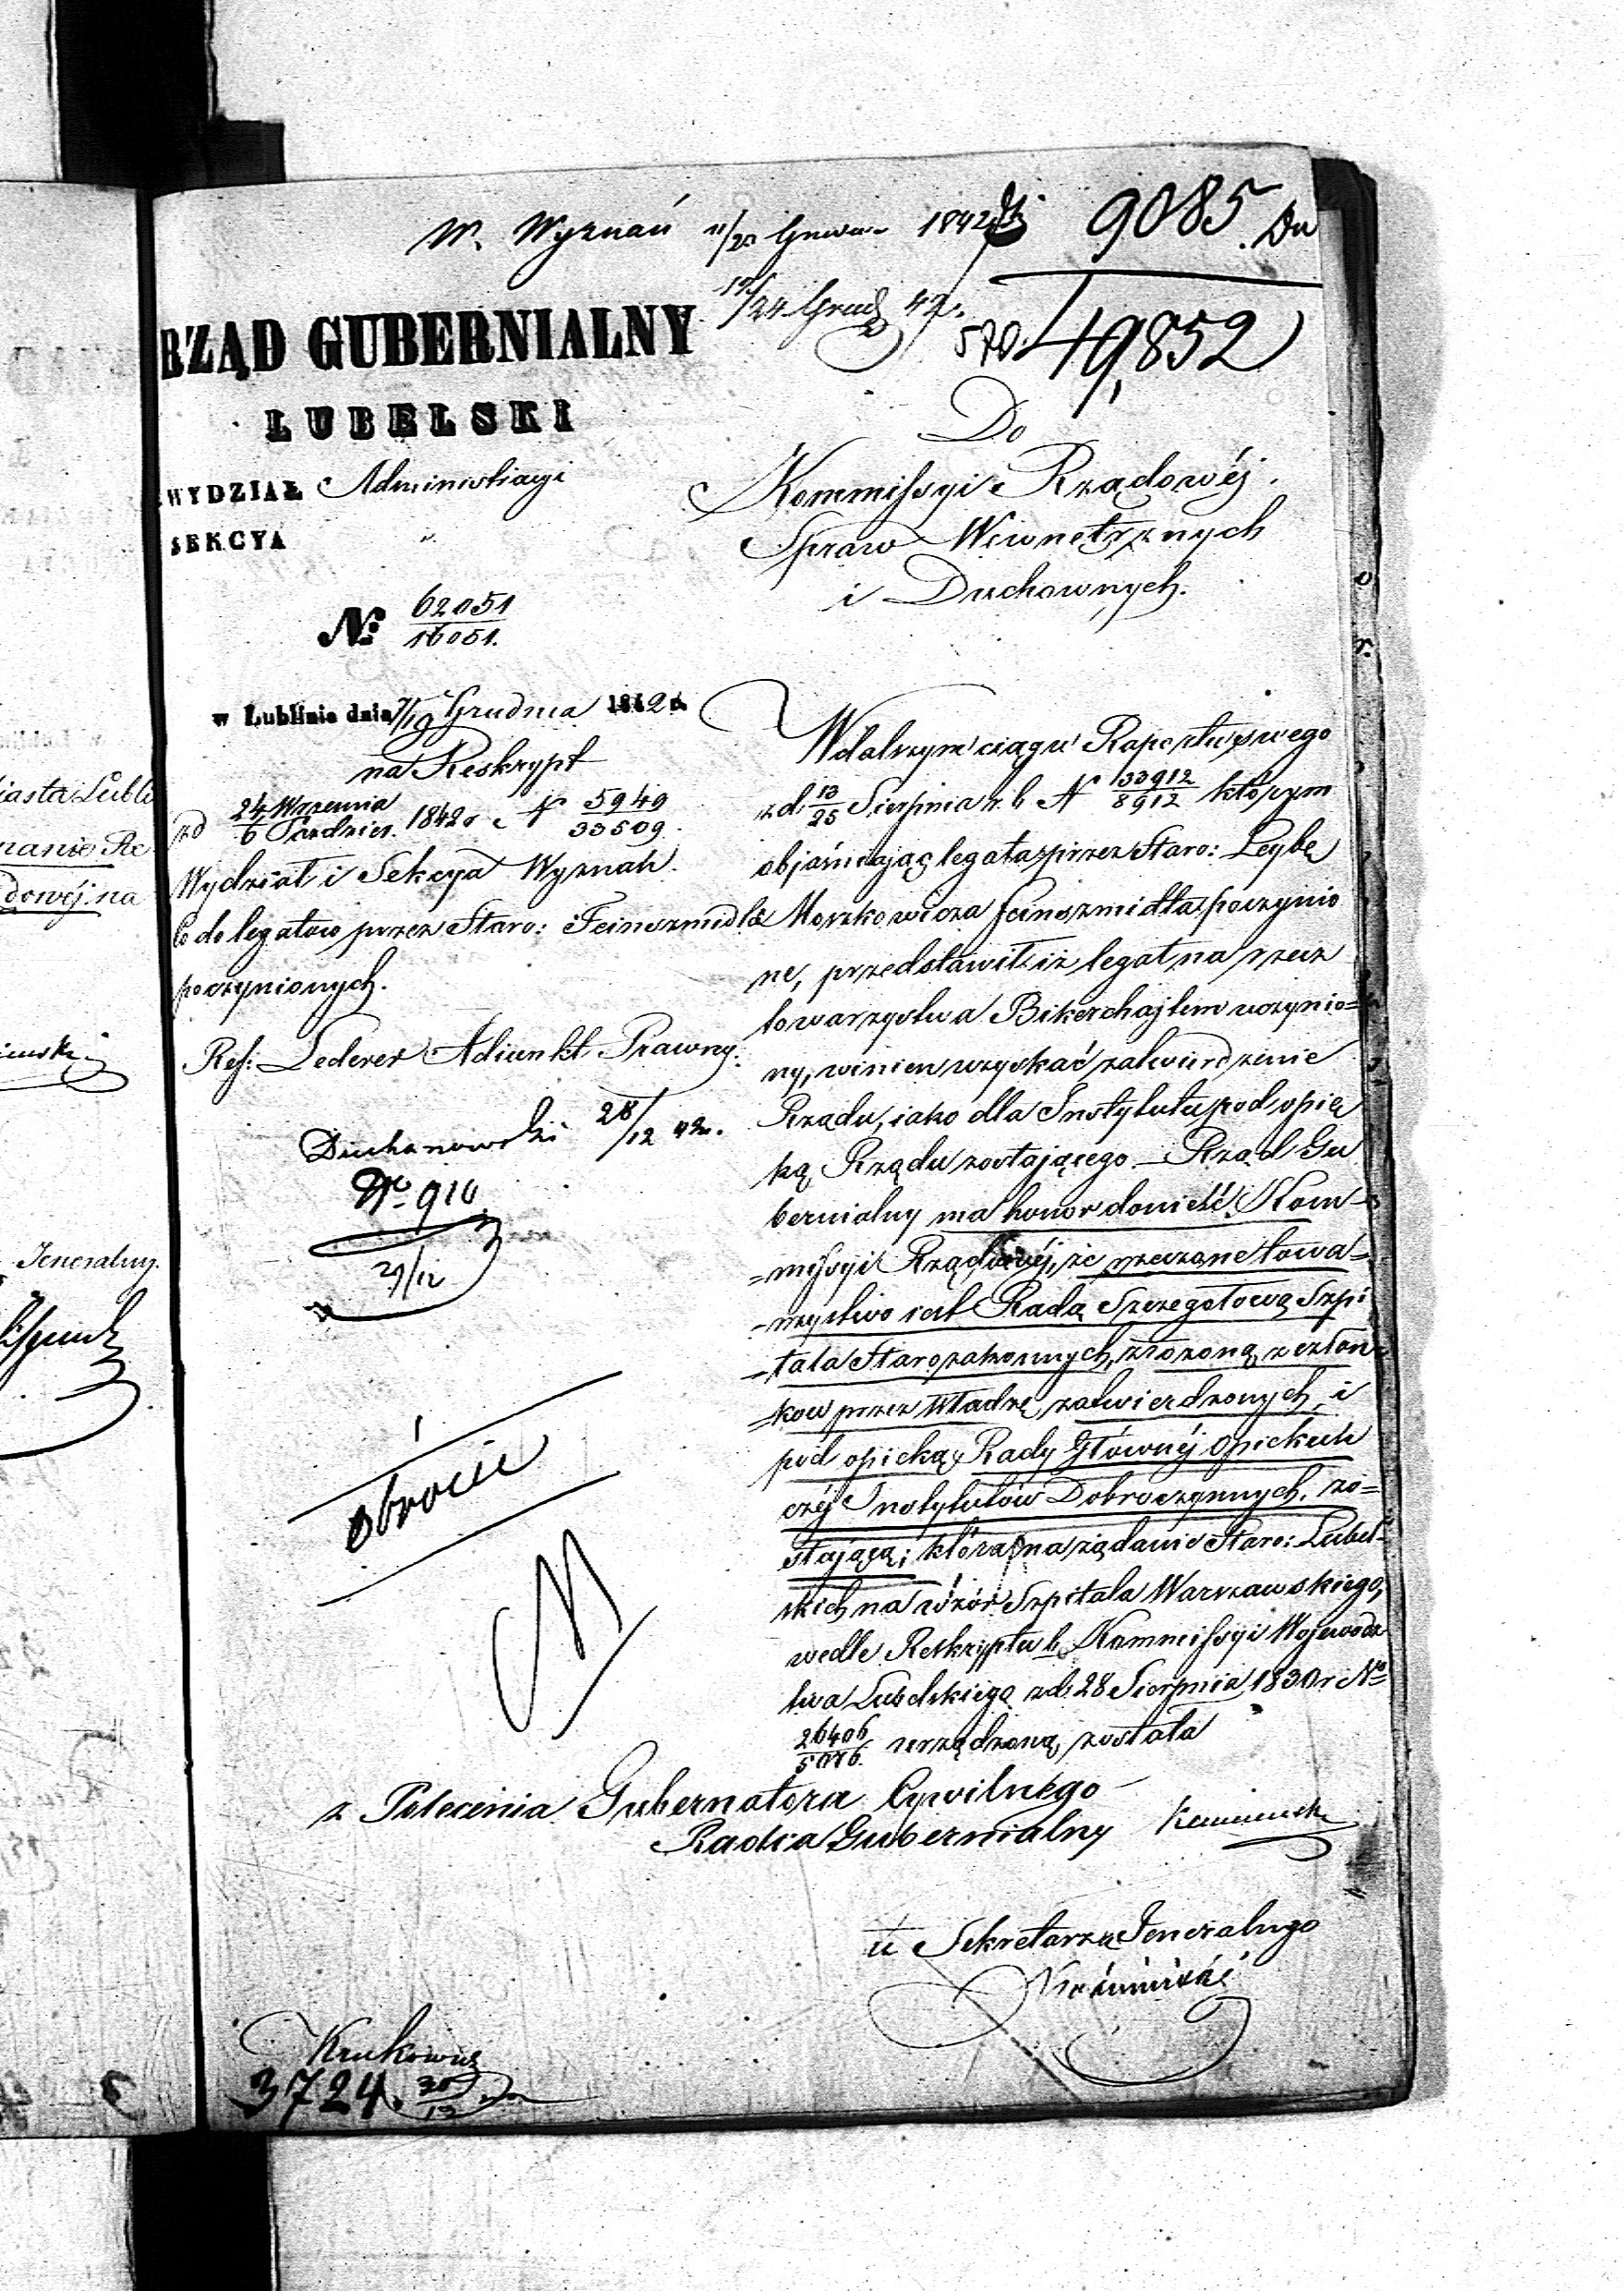 W. Wyznań 11/23 Grud 1842
9085. Du
12/24 Grud 42.
570. 49,852
RZĄD GUBERNIALNY
LUBELSKI
WYDZIAŁ Administracyi
SEKCYA
№ 62051/16051.
w Lublinie dnia 7/19 Grudnia 1842 r.
na Reskrypt
zd 24 Września/6 Paździer. 1842 r N 5949/33509.
Wydział i Sekcya Wyznań.
Co do legatow przez Staro: Feinszmidta
poczynionych.
Ref: Lederer Adiunkt Prawny.
Duchanowski 28/12 42.
No 910
29/12
obrocić
Do
Kommissyi Rządowéj
Spraw Wewnętrznych
i Duchownych.
W dalszym ciągu Raportu swego
zd 13/25 Sierpnia r. b N 33912/8912 którym
objaśniając legata przez Staro: Leybę
Moszkowicza Feinszmidta poczynio
ne, przedstawił iż legat na rzecz
towarzystwa Bikerchajlem uczynio=
ny, winien uzyskać zatwierdzenie
Rządu, iako dla Instytutu pod opie
ką Rządu zostającego. — Rząd Gu
bernialny ma honor donieść Kom=
=missyi Rządowéj, że rzeczone towa=
=rzystwo iest Radą Szczegołową Szpi
=tala Starozakonnych, złożoną z człon
=kow przez Władzę zatwierdzonych, i
pod opieką Rady Głównéj Opiekuń
czéj Instytutów Dobroczynnych. zo=
stającą; która na żądanie Staro: Lubel=
skich na wzór Szpitala Warszawskiego,
wedle Reskryptu b. Kommissyi Wojewodz
twa Lubelskiego zd. 28 Sierpnia 1830 r No
26406/5076. urządzoną została
z Polecenia Gubernatora Cywilnego
Radca Gubernialny
u Sekretarza Jeneralnego
3724. 30/12
iasta Lubli
nanie Re
dowéj na
Jeneralny.